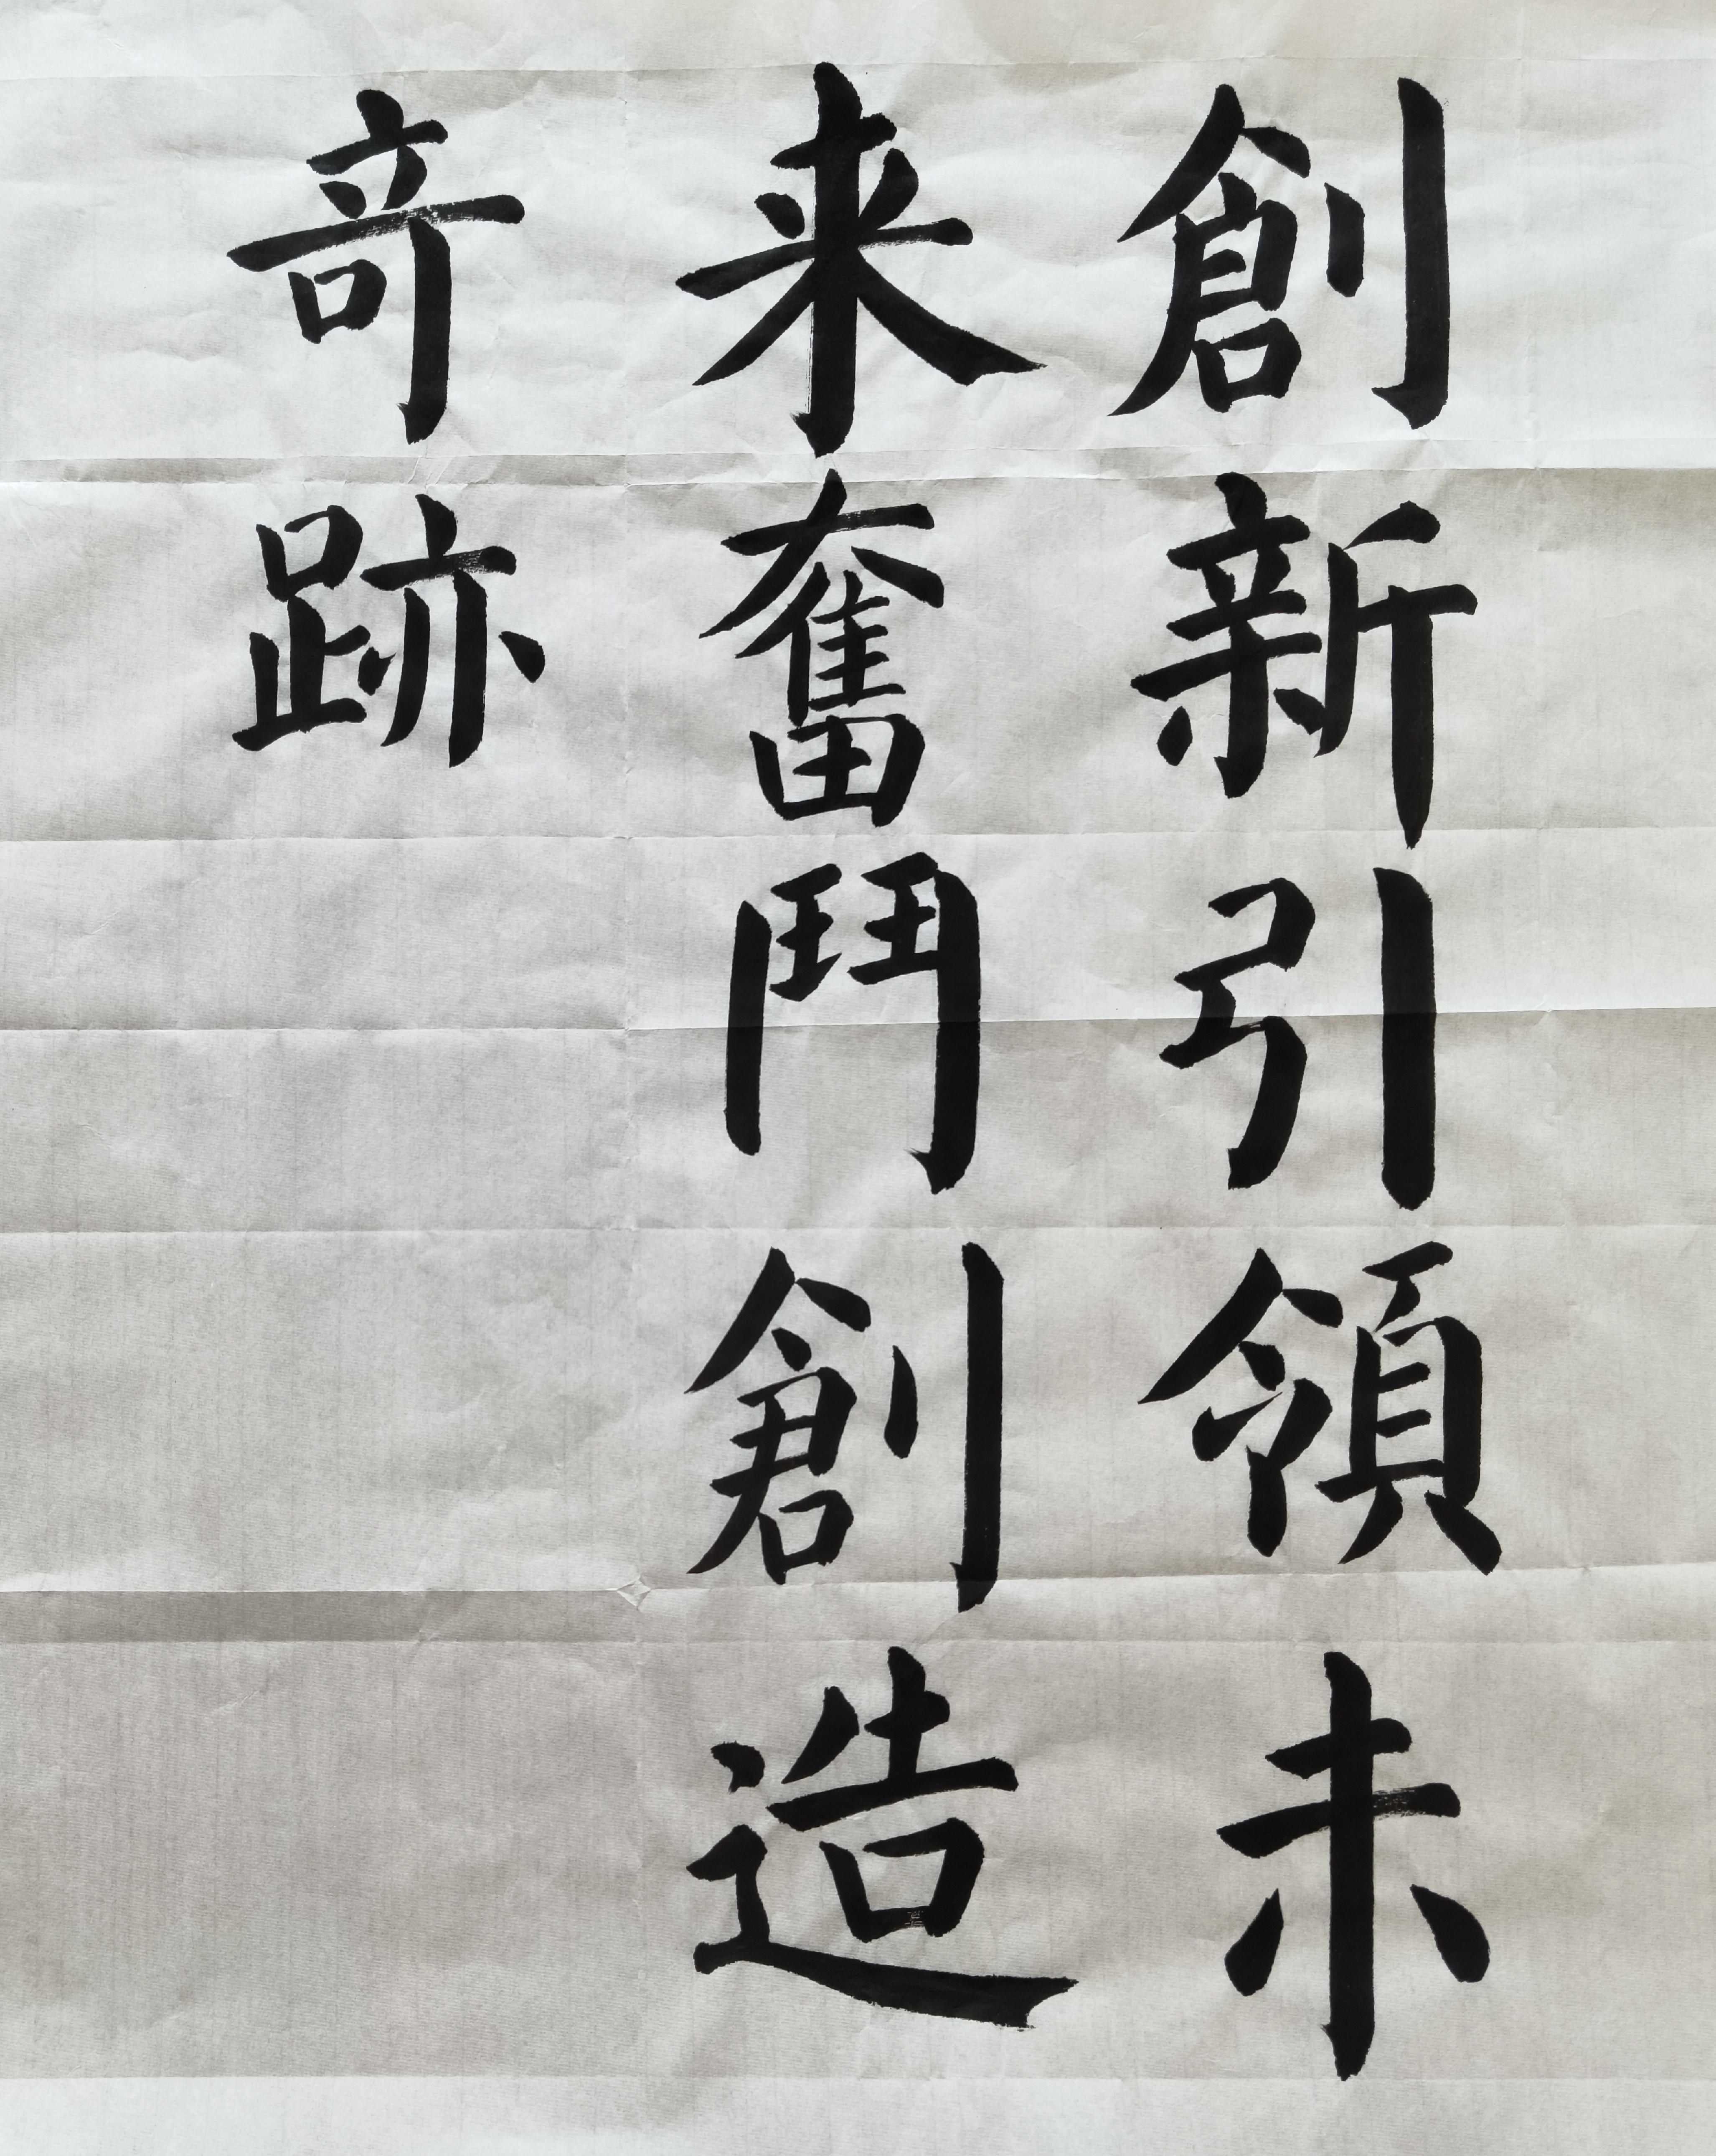 創新引領未
来奮鬥創造
竒跡